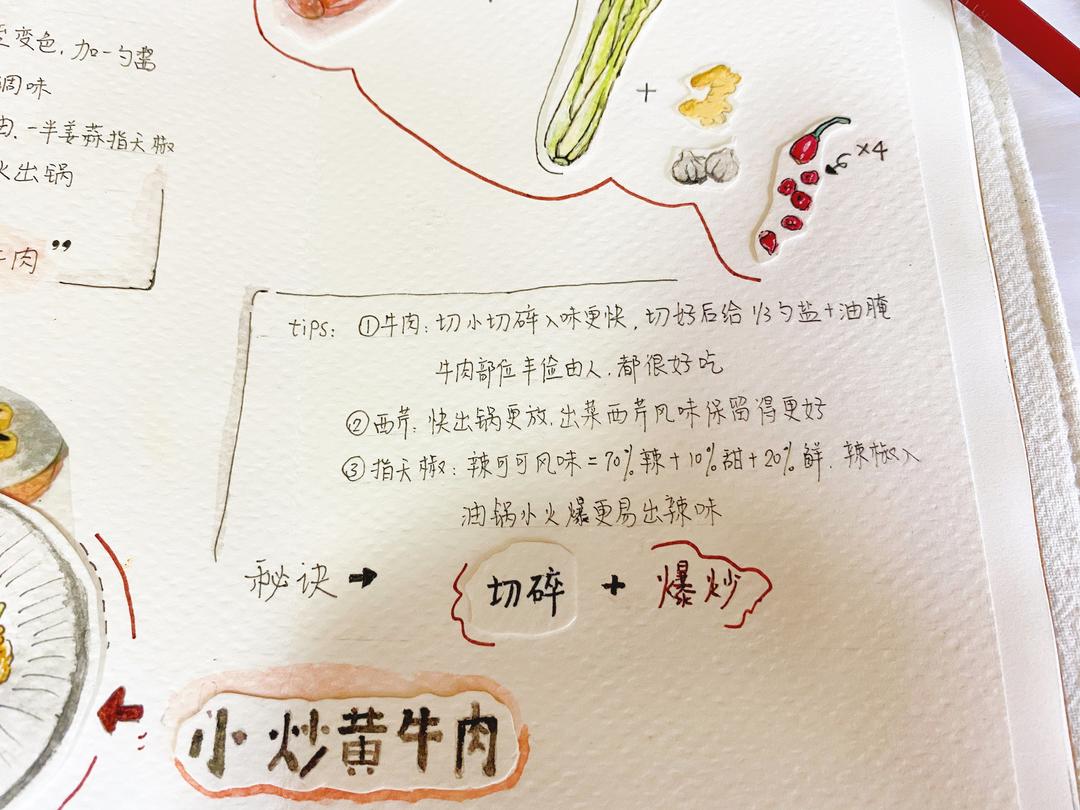 变色,加一勺酱
调味
肉,一半姜蒜指天椒
火出锅
牛肉”
+
×4
tips: ①牛肉:切小切碎入味更快,切好后给1/3勺盐+油腌
牛肉部位丰俭由人,都很好吃
②西芹:快出锅更放,出菜西芹风味保留得更好
③指天椒:辣可可风味=70%辣+10%甜+20%鲜.辣椒入
油锅小火爆更易出辣味
秘诀→ 切碎+爆炒
小炒黄牛肉